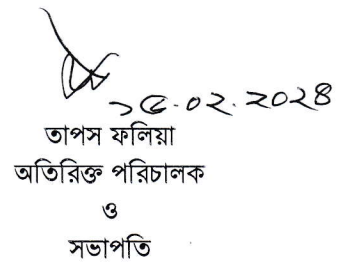 ১৫.০২.২০২৪
তাপস ফলিয়া
অতিরিক্ত পরিচালক
ও
সভাপতি